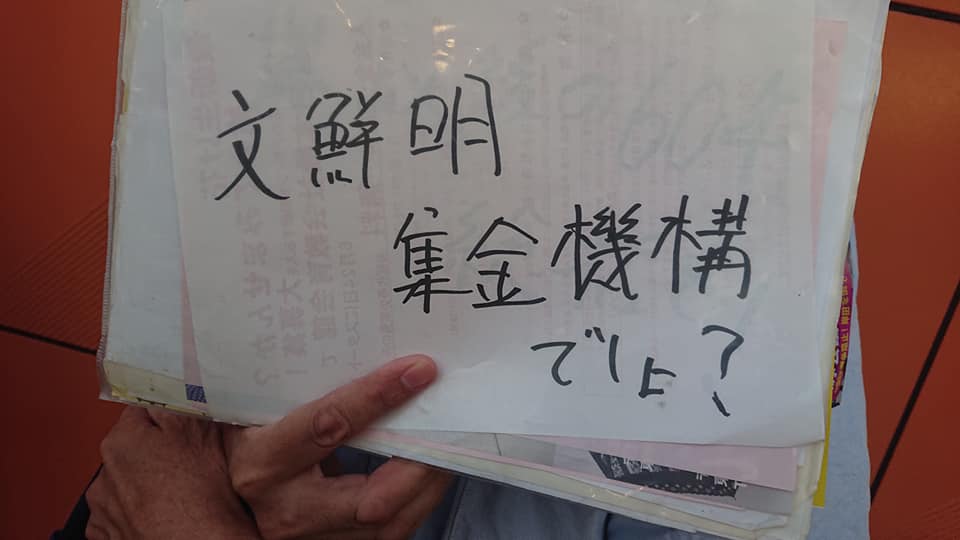 文鮮明
集金機構
でしょ?